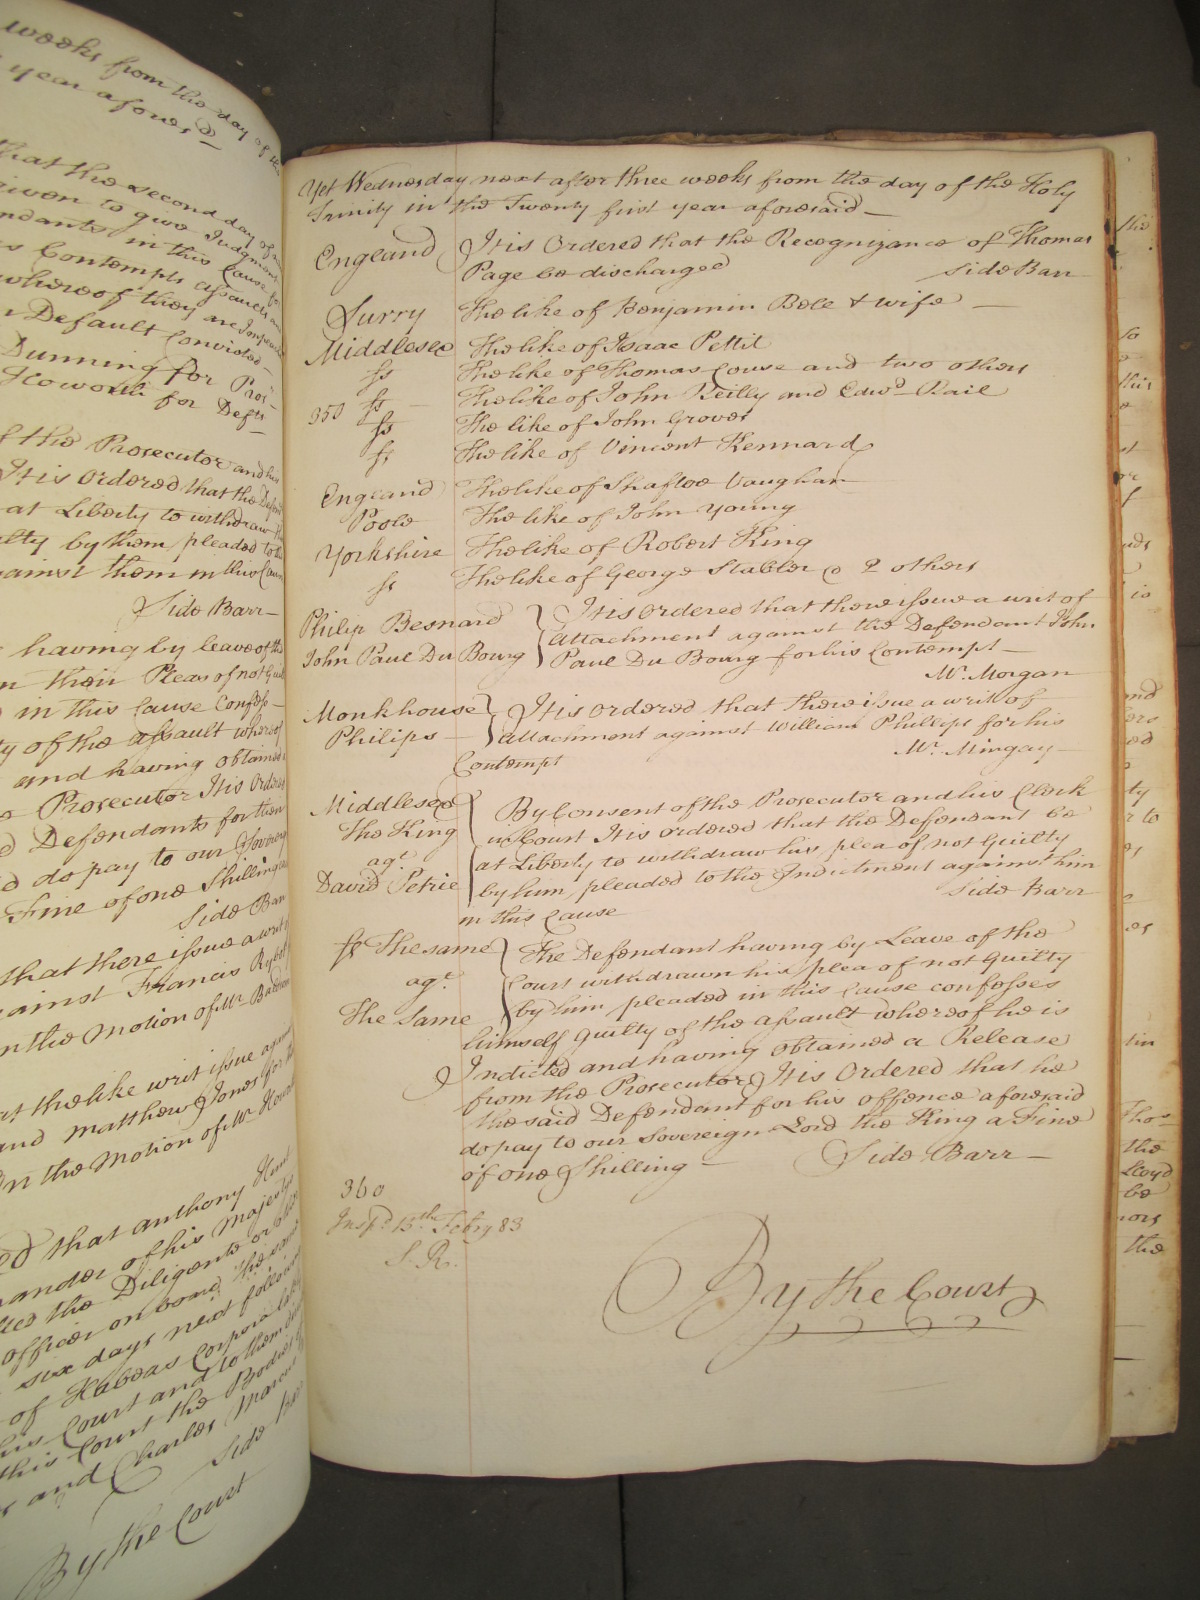 weeks from the day of the
year afores.d
that the second day of
given to give Judgment
endants in this Cause for
Contempts assaults and
whereof they are
Default Convicted
Dunning for Pros.r
Howorth for Deft
of the Prosecutor and his
It is Ordered that the Defend
at Liberty to withdraw
by them pleaded to the
against them in this Cause
Side Barr
having by leave of the
their Pleas of not Guil
in this Cause Confess
ty of the assault whereof
and having obtained
Prosecutor It is Order
Defendants for their
do pay to our Sovereign
Fine of one Shilling
Side Barr
that there issue a writ
against Francis
n the Motion of Mr.
the like writ issue again
and Matthew Jones for
n the Motion of Mr.
that Anthony
ander of his Majestys
the Diligente or
officer on board the said
six days next following
of Habeas Corpora
this Court and to them
this Court the Bodies
and Charles
Side Barr
By the Court
Yet Wednesday next after three weeks from the day of the Holy
Trinity in the Twenty first year aforesaid
England It is Ordered that the Recognizance of Thomas
Page be discharged Side Barr
Surry The like of Benjamin Bele & wife
Middlesex The like of Isaac Pettit
ss The like of Thomas Couse and two others
350 ss The like of John Reilly and Edwd. Rail
ss The like of John Grover
ss The like of Vincent Kennard
England The like of Shaftoe Vaughan
Poole The like of John Young
Yorkshire The like of Robert King
ss The like of George Stabler & 2 others
Philip Besnard It is Ordered that there issue a writ of
Attachment against the Defendant John
John Paul Du Bourg Paul Du Bourg for his Contempt
Mr. Morgan
Monkhouse It is Ordered that there issue a writ of
Philips Attachment against William Phillips for his
Contempt Mr. Mingay
Middlesex By Consent of the Prosecutor and his Clerk
The King in Court It is ordered that the Defendant be
agt. at Liberty to withdraw his plea of not Guilty
David Petrie by him pleaded to the Indictment against him
in this Cause Side Barr
ss The same The Defendant having by Leave of the
agt. Court withdrawn his plea of not Guilty
The Same by him pleaded in this Cause confesses
himself Guilty of the assault whereof he is
Indicted and having obtained a Release
from the Prosecutor It is Ordered that he
the said Defendant for his offence aforesaid
do pay to our Sovereign Lord the King a Fine
of one Shilling Side Barr
360
Inspd. 13th Febry 83
S. R.
By the Court